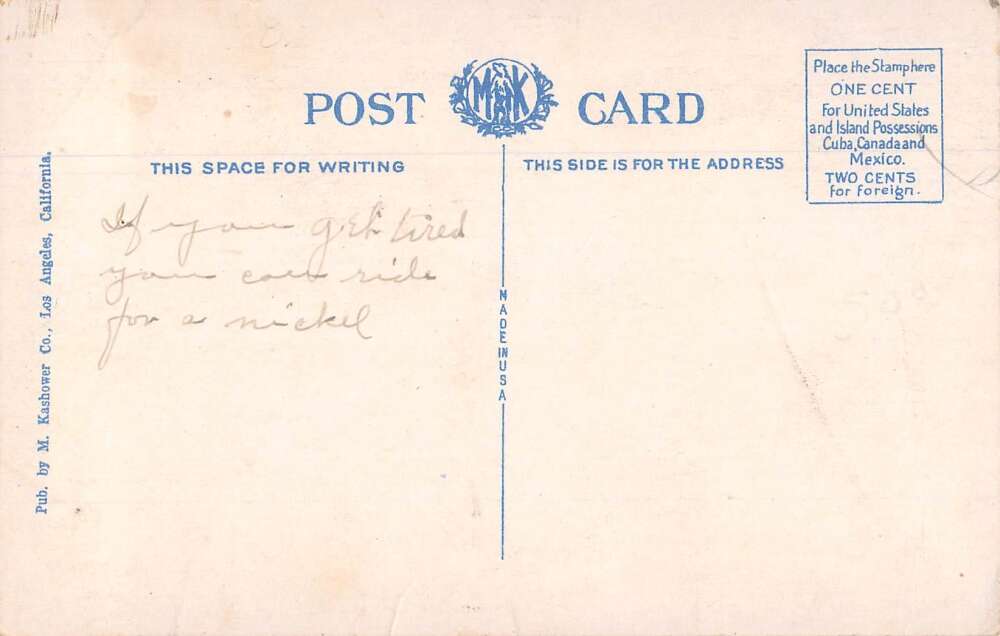 POST CARD
MK
THIS SPACE FOR WRITING
THIS SIDE IS FOR THE ADDRESS
Place the Stamp here
ONE CENT
For United States
and Island Possessions
Cuba, Canada and
Mexico.
TWO CENTS
for foreign.
If you get tired
you can ride
for a nickel
MADE IN USA
Pub. by M. Kashower Co., Los Angeles, California.